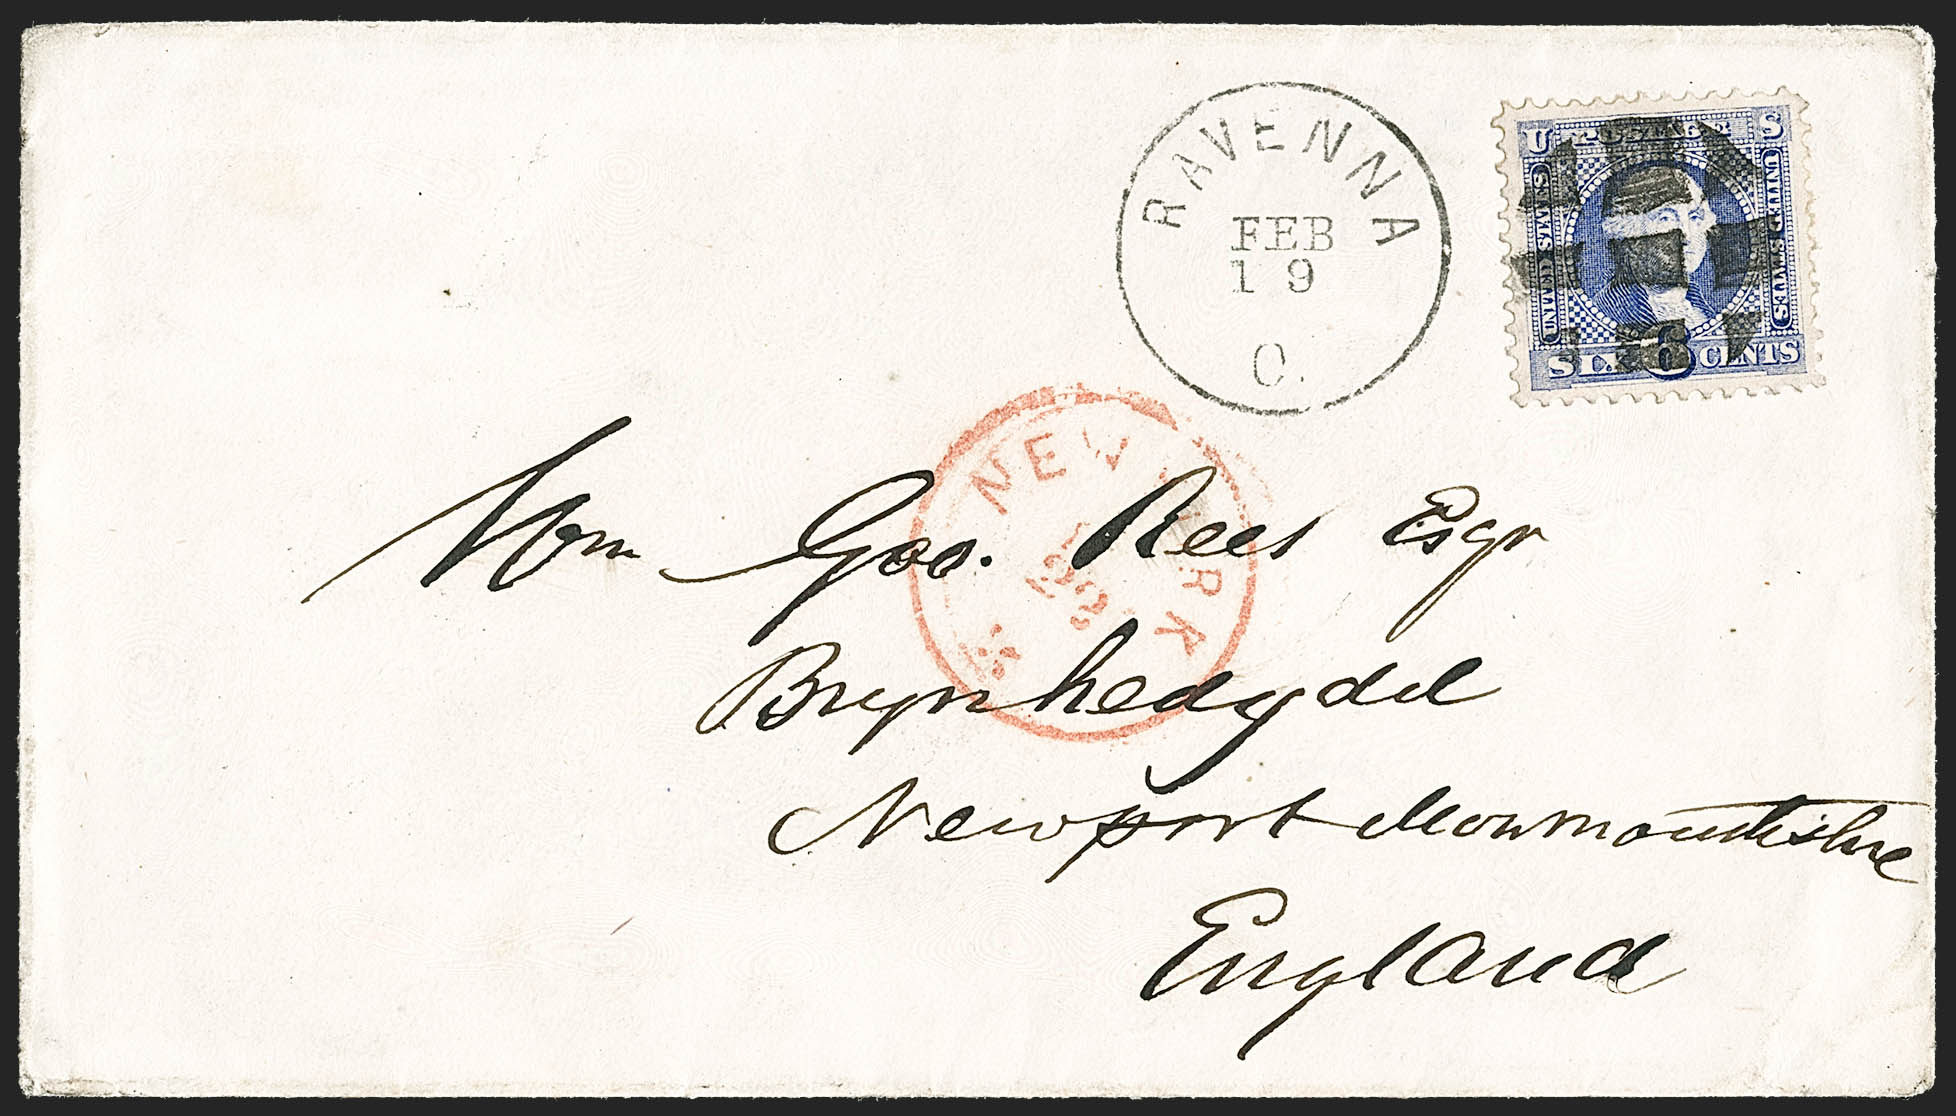 RAVENNA
FEB
19
O.
U S
POSTAGE
UNITED STATES
UNITED STATES
SIX 6 CENTS
NEW YORK
Wm Geo. Rees Esqr
Brynhedydd
Newport Monmouthshire
England